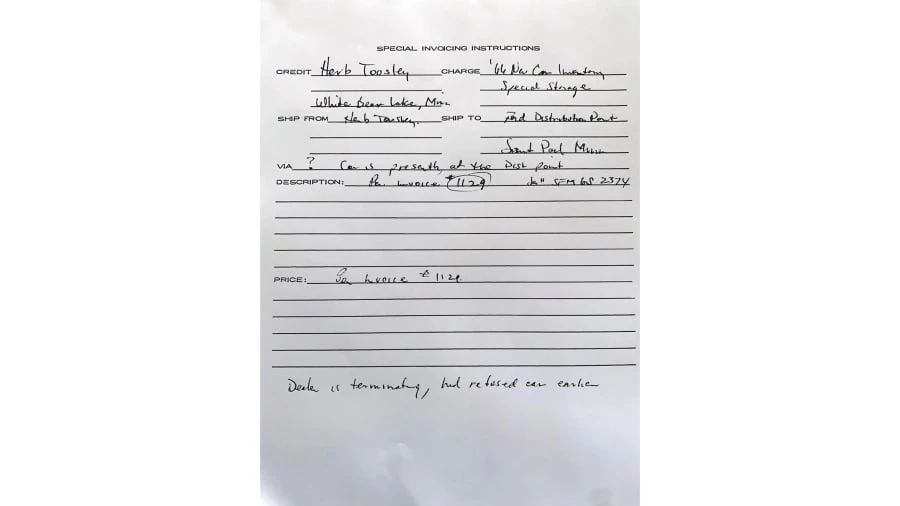 SPECIAL INVOICING INSTRUCTIONS
CREDIT Herb Tousley CHARGE '66 New Car Inventory
Special Storage
White Bear Lake, Minn
SHIP FROM Herb Tousley. SHIP TO Ford Distribution Point
Saint Paul Minn
VIA ? Car is presently at the Dist point
DESCRIPTION: Per invoice #1129 SFM 6S 2374
PRICE: Per Invoice #1129
Dealer is terminating, had refused car earlier